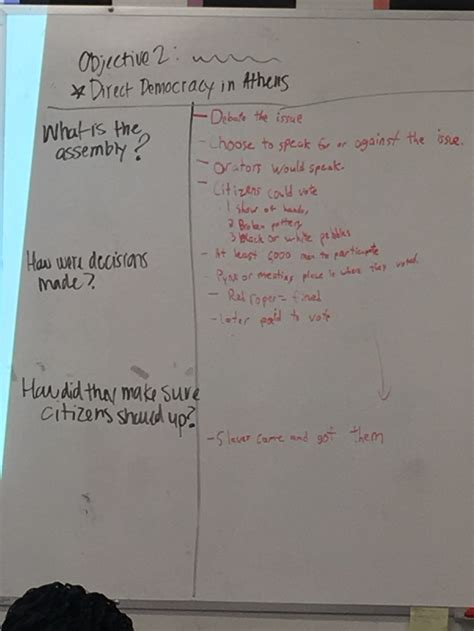 Objective 2:
* Direct Democracy in Athens
What is the
assembly?
- Debate the issue
- Choose to speak for or against the issue.
- Orators would speak.
- Citizens could vote
1 Show of hands,
2 Broken pottery
3 Black or white pebbles
How were decisions
made?
- At least 6000 men to participate
- Pynx or meeting place is where they voted.
- Red rope = fined
- Later paid to vote
How did they make sure
citizens showed up?
- Slaves came and got them